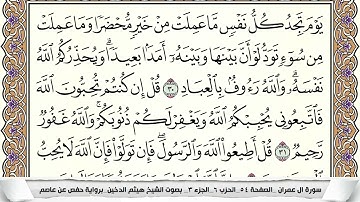 يَوْمَ تَجِدُ كُلُّ نَفْسٍ مَّا عَمِلَتْ مِنْ خَيْرٍ مُّحْضَرًا وَمَا عَمِلَتْ
مِن سُوٓءٍ تَوَدُّ لَوْ أَنَّ بَيْنَهَا وَبَيْنَهُۥٓ أَمَدَۢا بَعِيدًا ۗ وَيُحَذِّرُكُمُ ٱللَّهُ
نَفْسَهُۥ ۗ وَٱللَّهُ رَءُوفُۢ بِٱلْعِبَادِ ٣٠ قُلْ إِن كُنتُمْ تُحِبُّونَ ٱللَّهَ
فَٱتَّبِعُونِى يُحْبِبْكُمُ ٱللَّهُ وَيَغْفِرْ لَكُمْ ذُنُوبَكُمْ ۗ وَٱللَّهُ غَفُورٌ
رَّحِيمٌ ٣١ قُلْ أَطِيعُوا۟ ٱللَّهَ وَٱلرَّسُولَ ۖ فَإِن تَوَلَّوْا۟ فَإِنَّ ٱللَّهَ لَا يُحِبُّ
سورة آل عمران _ الصفحة ٥٤ _ الحزب ٦ _ الجزء ٣ _ بصوت الشيخ هيثم الدخين _ برواية حفص عن عاصم